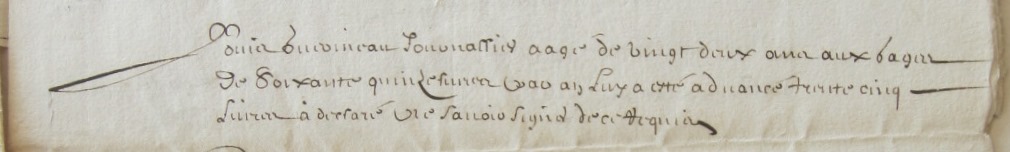 Journallier aagé de vingt deux ans aux gages
De Soixante quinze livres par an Luy a esté advancé trente cinq
Livres à declaré ne savoir signer de ce requis